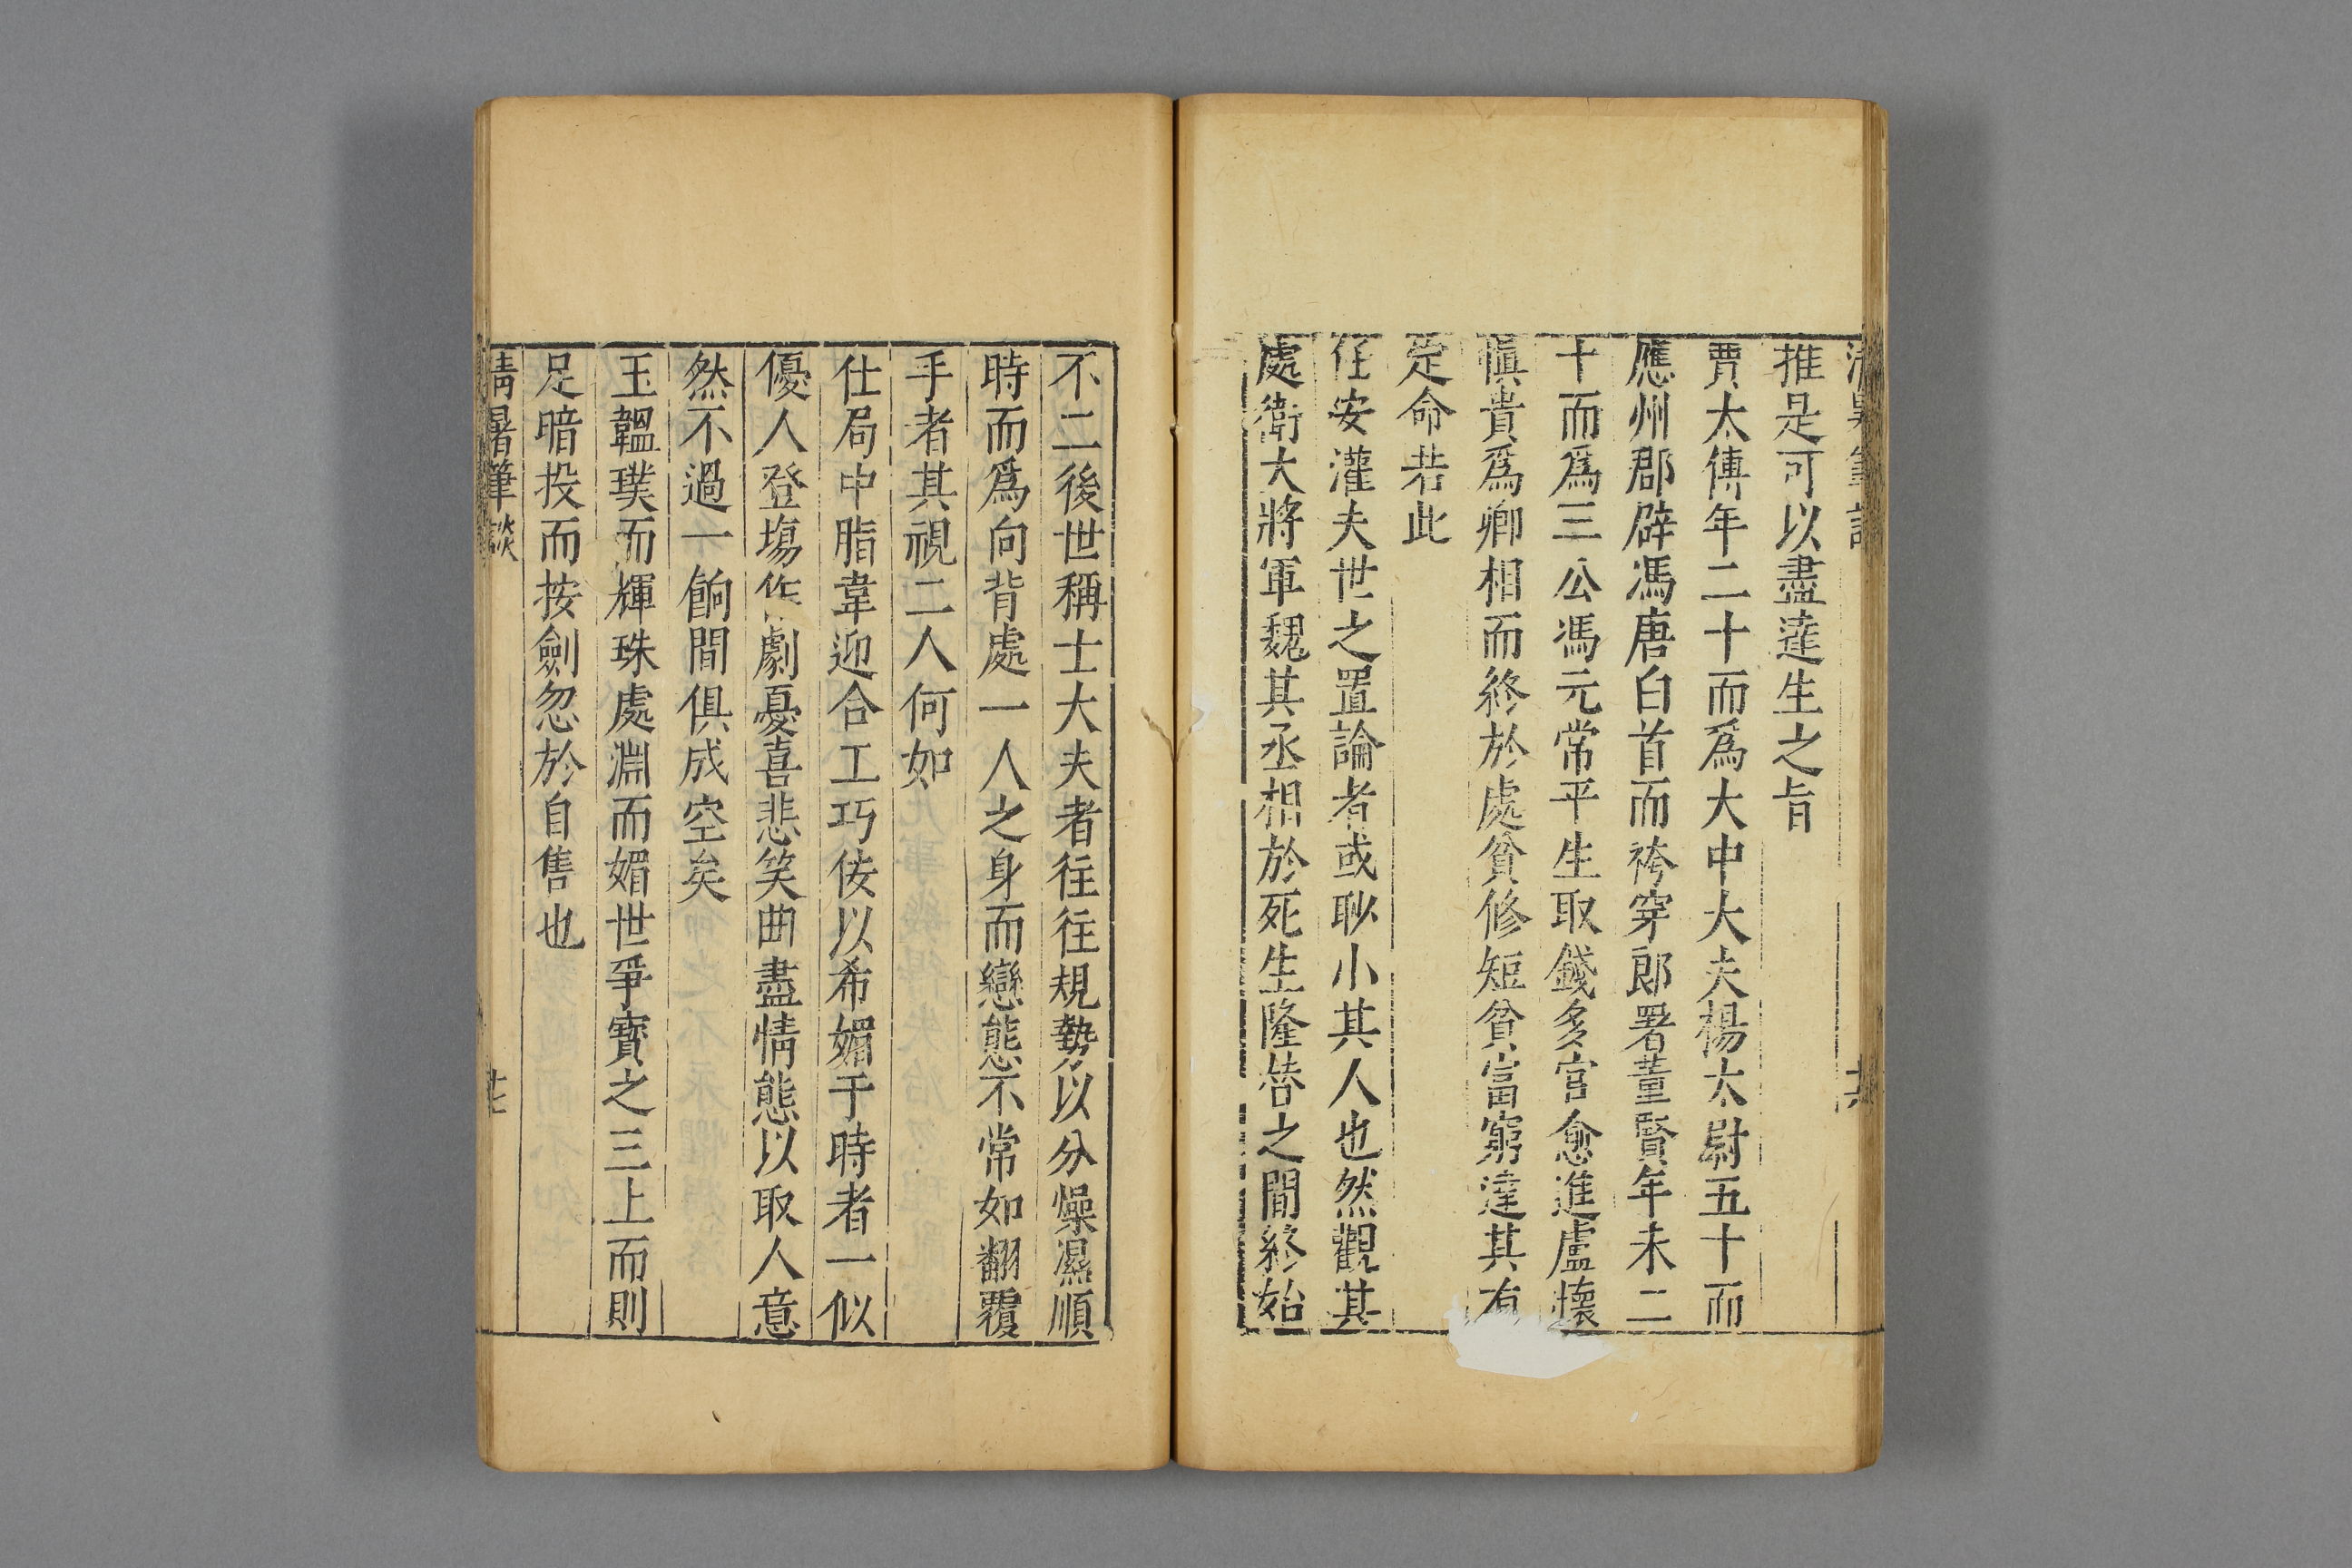 推是可以盡達生之旨
賈太傅年二十而爲大中大夫楊太尉五十而
應州郡辟馮唐白首而袴穿郎署董賢年未二
十而爲三公馮元常平生取錢多官愈進盧懷
愼貴爲卿相而終於處貧修短貧富窮達其有
定命若此
任安灌夫世之置論者或眇小其人也然觀其
處衛大將軍魏其丞相於死生隆替之間終始
不二後世稱士大夫者往往規勢以分燥濕順
時而爲向背處一人之身而戀態不常如翻覆
手者其視二人何如
仕局中脂韋迎合工巧佞以希媚于時者一似
優人登塲作劇憂喜悲笑曲盡情態以取人意
然不過一餉間俱成空矣
玉韞璞而輝珠處淵而媚世爭寶之三上而則
足暗投而按劍忽於自售也
清暑筆談